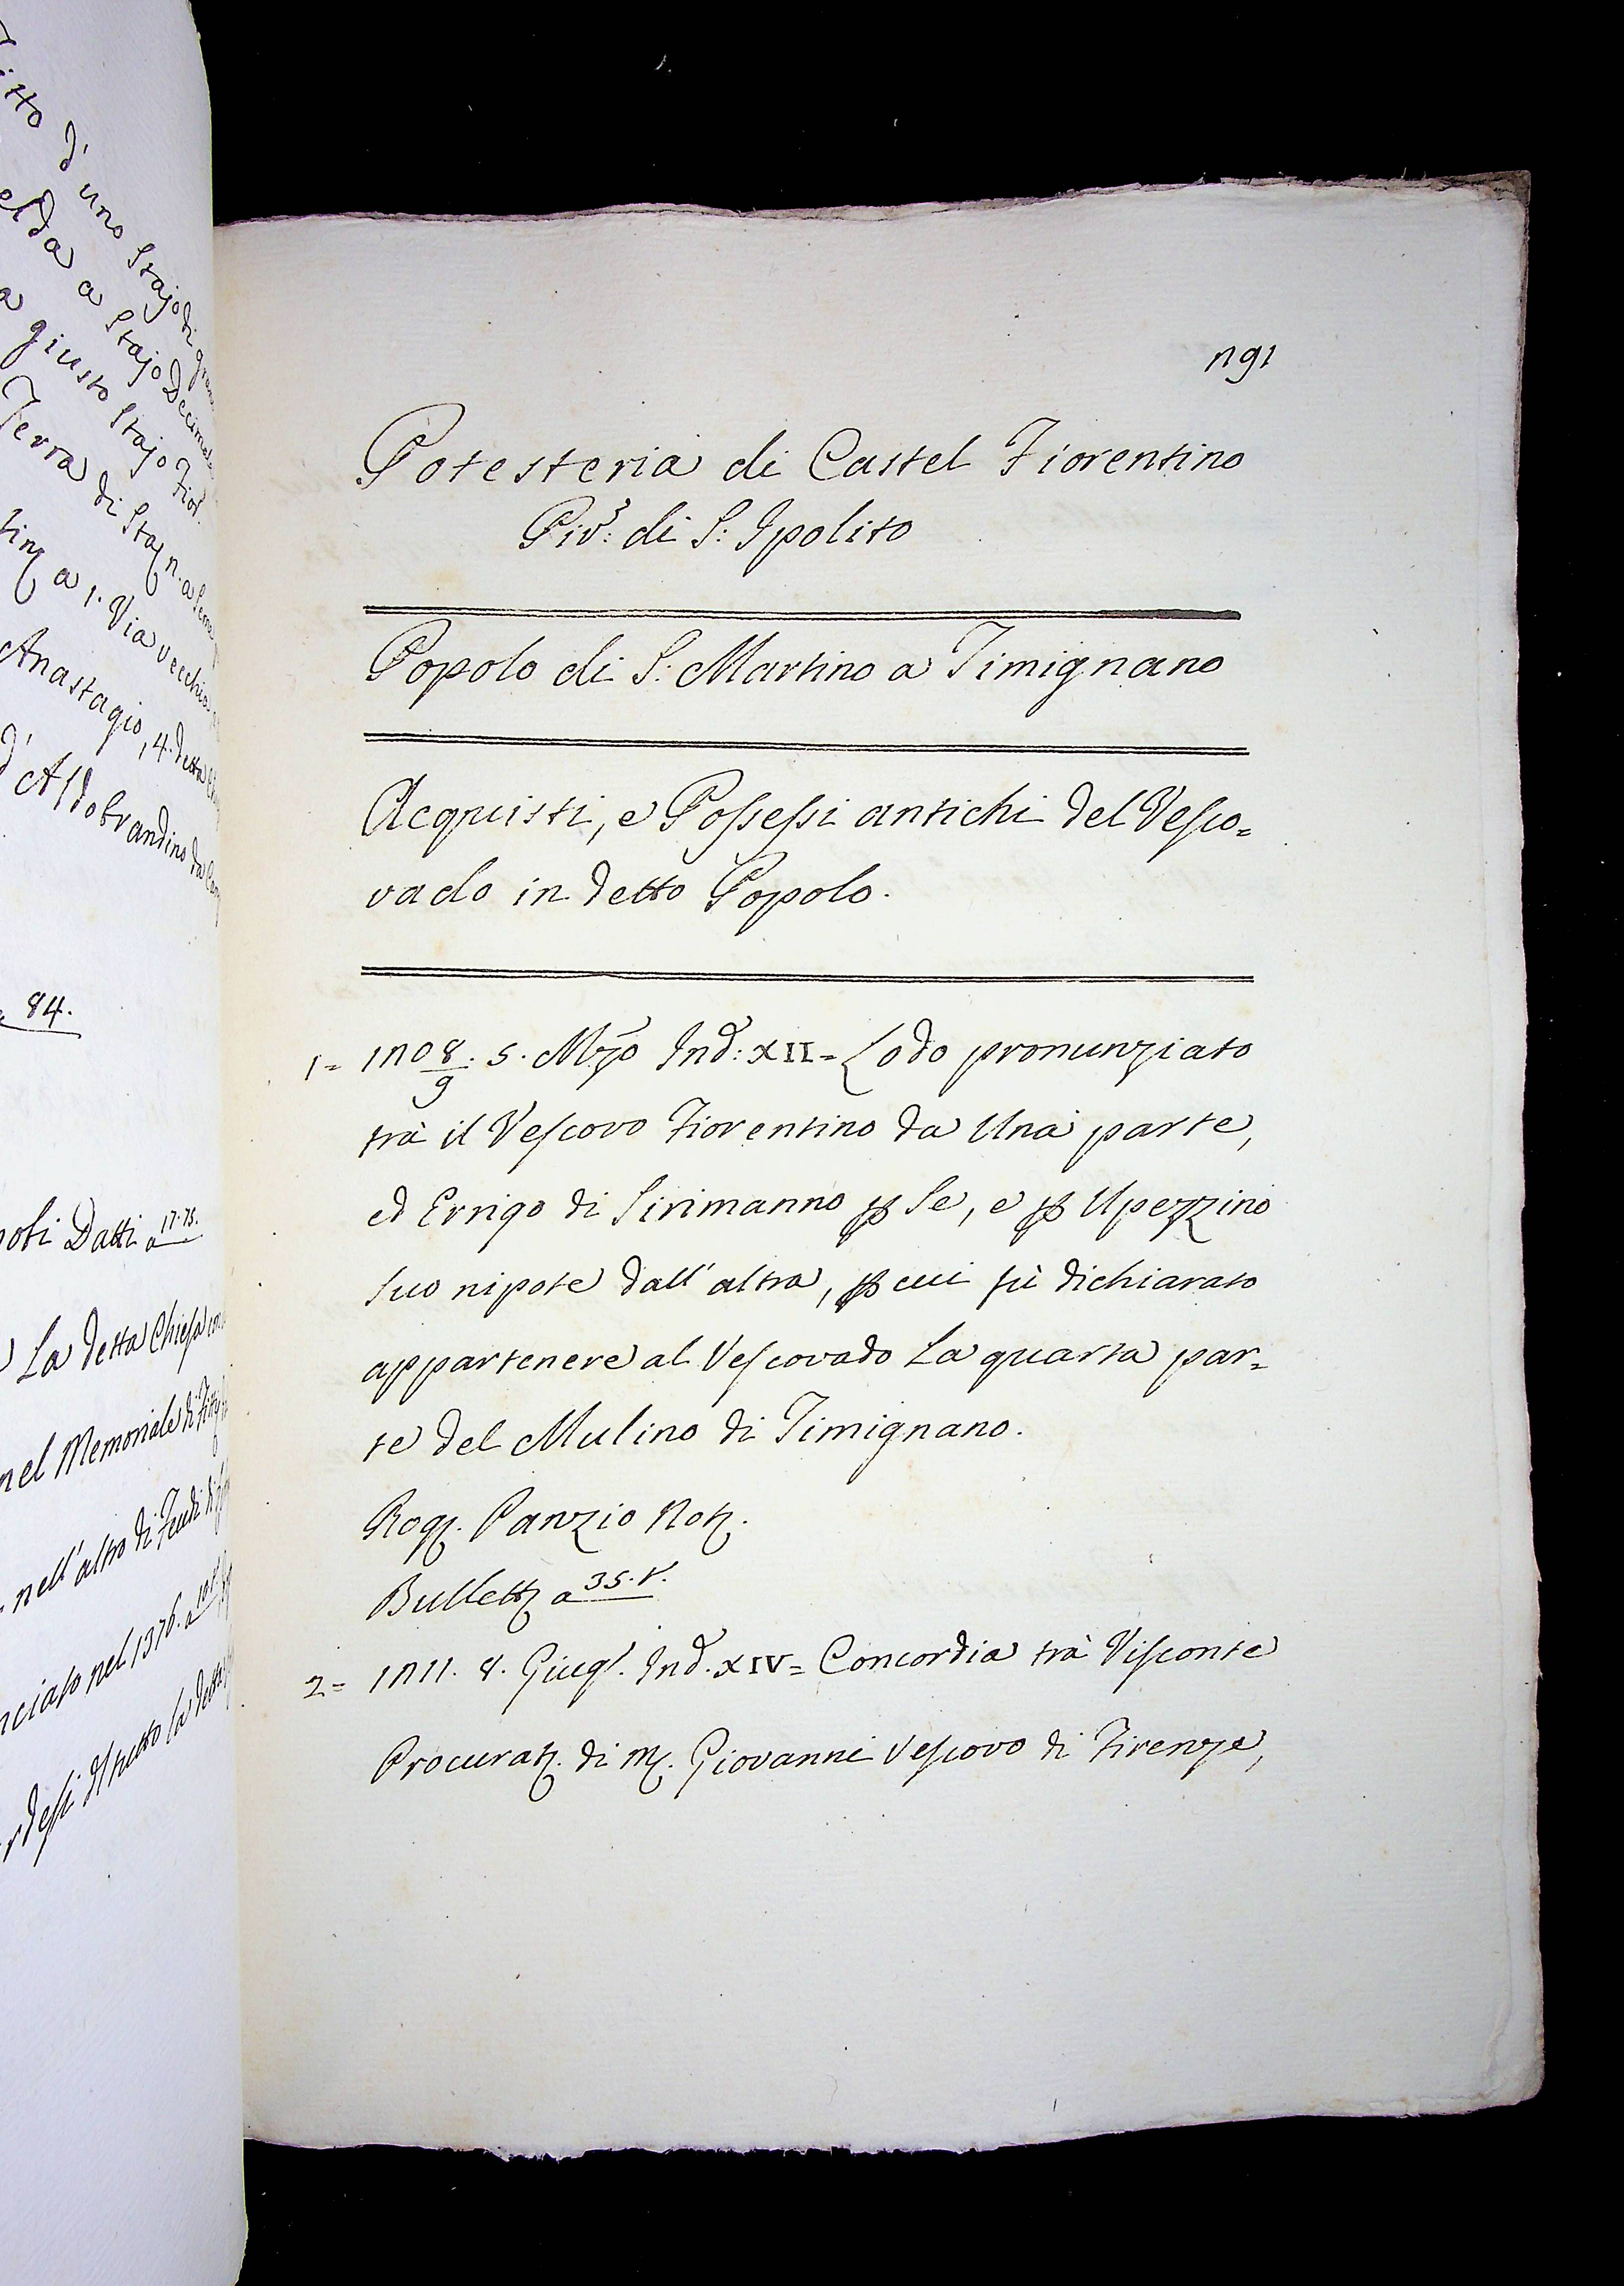 itto d'uno Stajo di gran
elda a Stajo Decimale
a giusto Stajo Fior.
Terra di Staj 2. a Seme
a 1. Via vecchia
Anastagio, 4. detta
d'Aldobrandino da
84.
Datti a 17.75.
La detta Chiesa
nel Memoriale di
nell'altro di Feudi di
nciato nel 1376. a
291
Potesteria di Castel Fiorentino
Piv.e di S: Ipolito
Popolo di S: Martino a Timignano
Acquisti, e Possessi antichi del Vesco=
vado in detto Popolo.
1= 1208/9. 5. Mzo Ind: XII= Lodo pronunziato
trà il Vescovo Fiorentino da Una parte,
ed Errigo di Sirimanno p Se, e p Upezzino
suo nipote dall'altra, p cui fù dichiarato
appartenere al Vescovado La quarta par=
te del Mulino di Timignano.
Rog. Panzio Not.
Bullett a 35.t.
2= 1211. 8. Giug. Ind. XIV= Concordia trà Visconte
Procurat. di M. Giovanni Vescovo di Firenze,